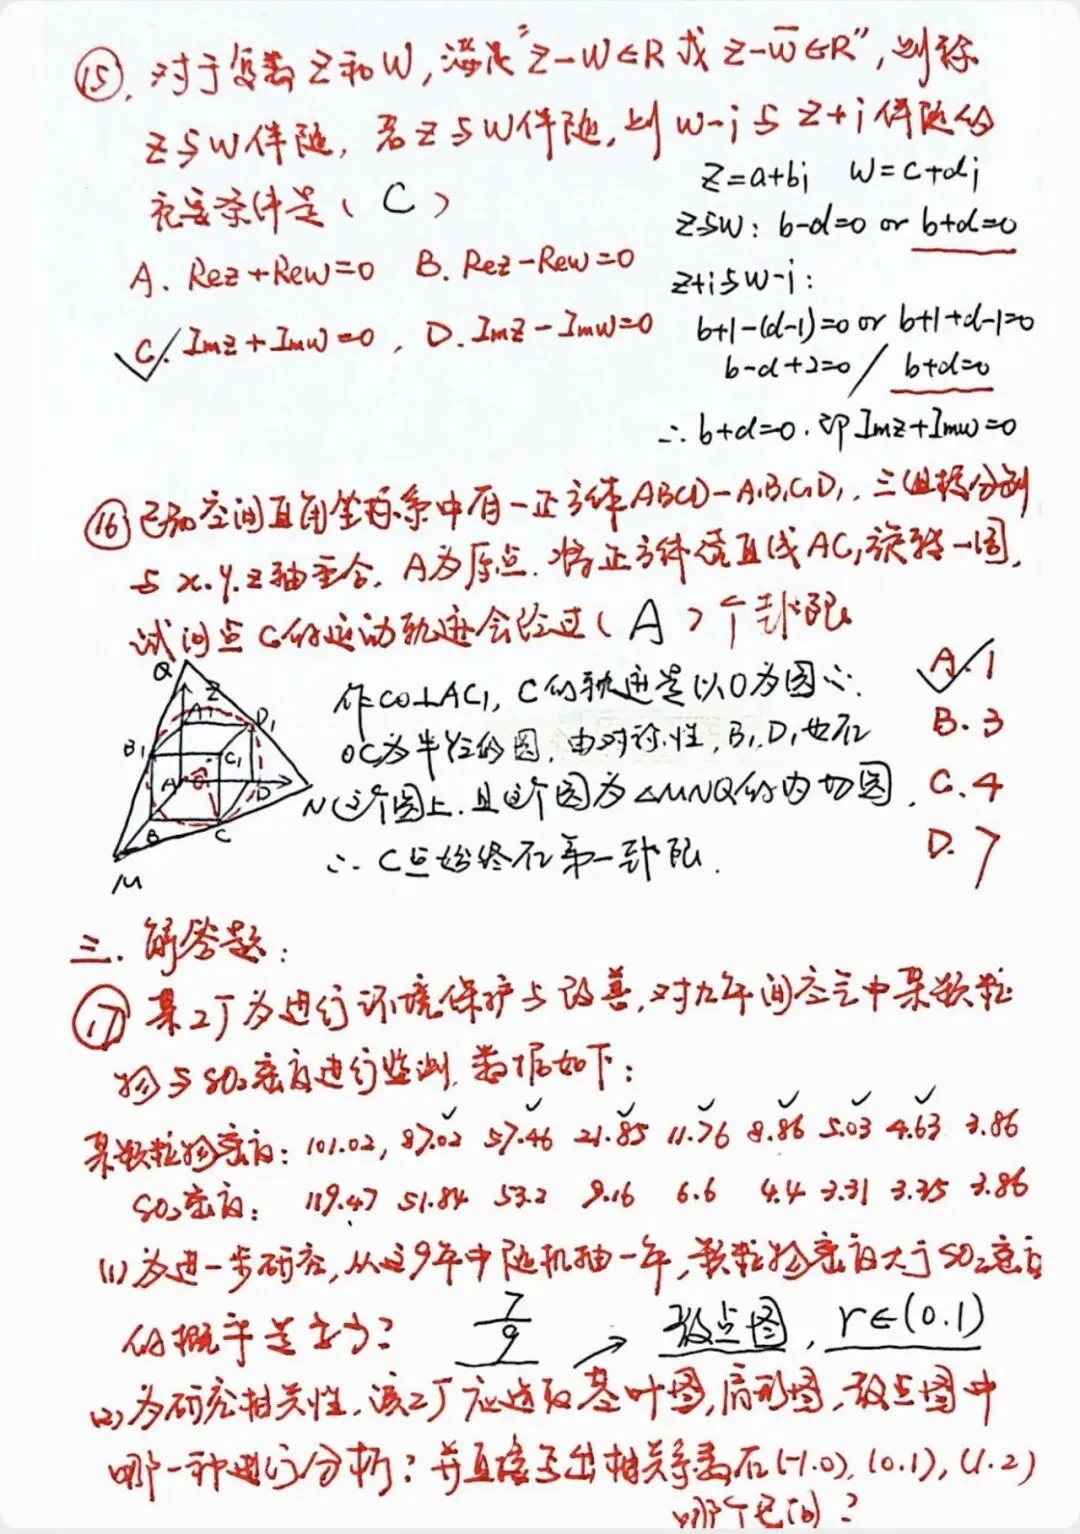 ⑮. 对于复数 Z 和 W, 满足"Z-W∈R 或 Z-W̄∈R", 则称
Z与W伴随, 若Z与W伴随, 则 W-i 与 Z+i 伴随的
充要条件是( C )
A. Rez+Rew=0 B. Rez-Rew=0
C. Imz+Imw=0, D. Imz-Imw=0
Z=a+bi W=c+di
Z与W: b-d=0 or b+d=0
Z+i与W-i:
b+1-(d-1)=0 or b+1+d-1=0
b-d+2=0 / b+d=0
∴ b+d=0. 即Imz+Imw=0
⑯已知空间直角坐标系中有一正方体ABCD-A₁B₁C₁D₁, 三组棱分别
与 x.y.z轴重合, A为原点. 将正方体绕直线AC₁旋转一周,
试问点C的运动轨迹会经过( A )个卦限
A. 1
B. 3
C. 4
D. 7
Q
Z
A₁
D₁
B₁
C₁
A
O
D
N
B
C
M
作CO⊥AC₁, C的轨迹是以O为圆心.
OC为半径的圆, 由对称性, B₁, D₁也在
这个圆上. 且这个圆为△MNQ的内切圆.
∴ C点始终在第一卦限.
三. 解答题:
⑰ 某工厂为进行环境保护与改善, 对九年间空气中某颗粒
物与SO₂密度进行监测, 数据如下:
某颗粒物密度: 101.02, 87.02 57.46 21.85 11.76 8.86 5.03 4.63 3.86
SO₂密度: 119.47 51.84 53.2 9.16 6.6 4.4 3.31 3.35 3.86
(1) 为进一步研究, 从这9年中随机抽一年, 颗粒物密度大于SO₂密度
的概率是多少? 7/9
散点图, r∈(0.1)
(2) 为研究相关性, 该工厂应选取茎叶图, 扇形图, 散点图中
哪一种进行分析? 并直接写出相关系数在(-1.0), (0.1), (1.2)
哪个区间?